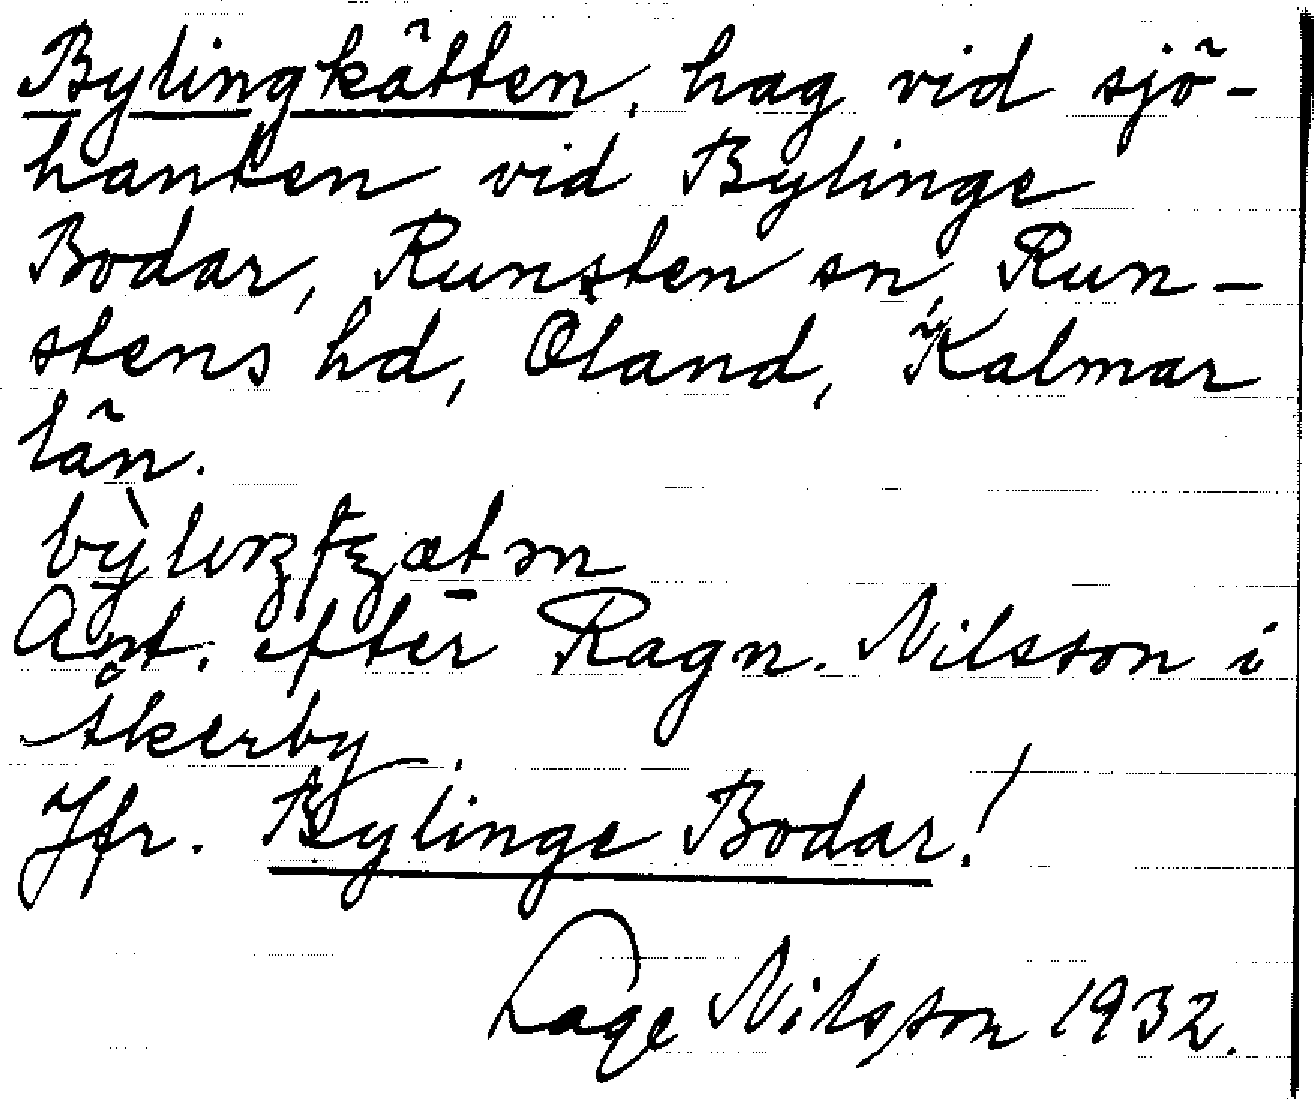 Bylingkätten, hag vid sjö-
hanken vid Bylinge
Bodar, Runsten sn, Run-
stens hd, Öland, Kalmar
län.
Ant. efter Ragn. Nilsson i
Åkerby.
Jfr. Bylinge Bodar!
Lage Nilsson 1932.